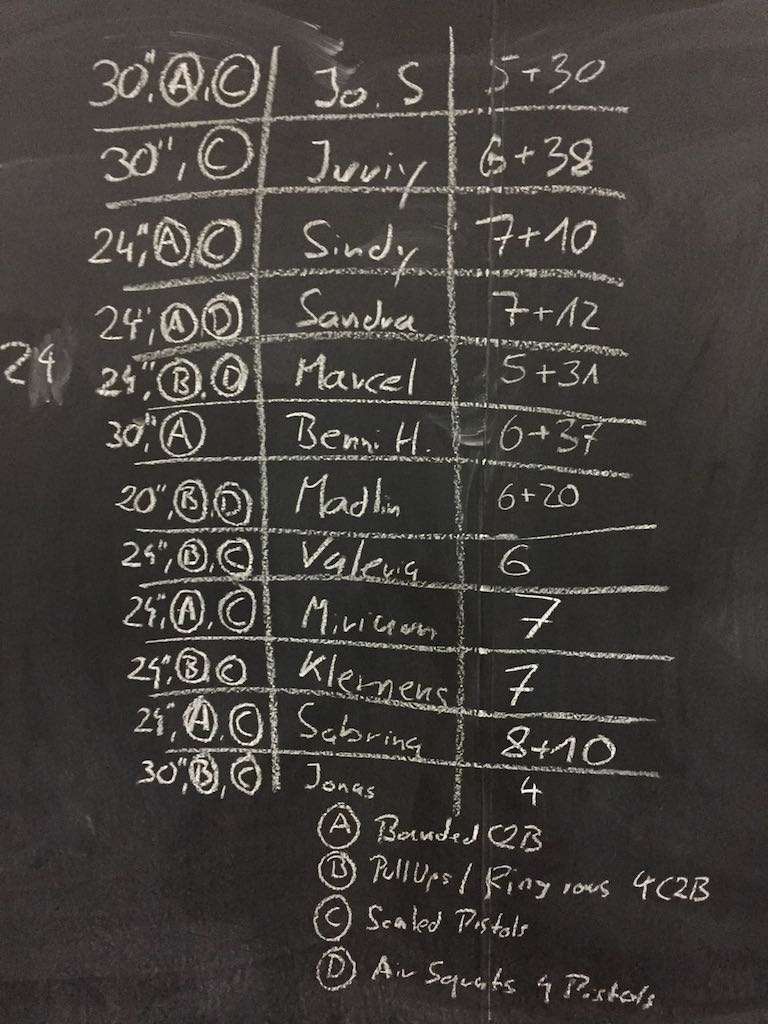 30", Ⓐ, Ⓒ Jo. S 5+30
30", Ⓒ Juriy 6+38
24", Ⓐ, Ⓒ Sindy 7+10
24", Ⓐ Ⓓ Sandra 7+12
24
24", Ⓑ, Ⓓ Marcel 5+31
30", Ⓐ Benni H. 6+37
20", Ⓑ, Ⓓ Madlin 6+20
24", Ⓑ, Ⓒ Valeria 6
24", Ⓐ, Ⓒ Miriam 7
24", Ⓑ Ⓒ Klemens 7
24", Ⓐ, Ⓒ Sabrina 8+10
30", Ⓑ, Ⓒ Jonas 4
Ⓐ Banded C2B
Ⓑ PullUps / Ring rows 4 C2B
Ⓒ Scaled Pistols
Ⓓ Air Squats 4 Pistols